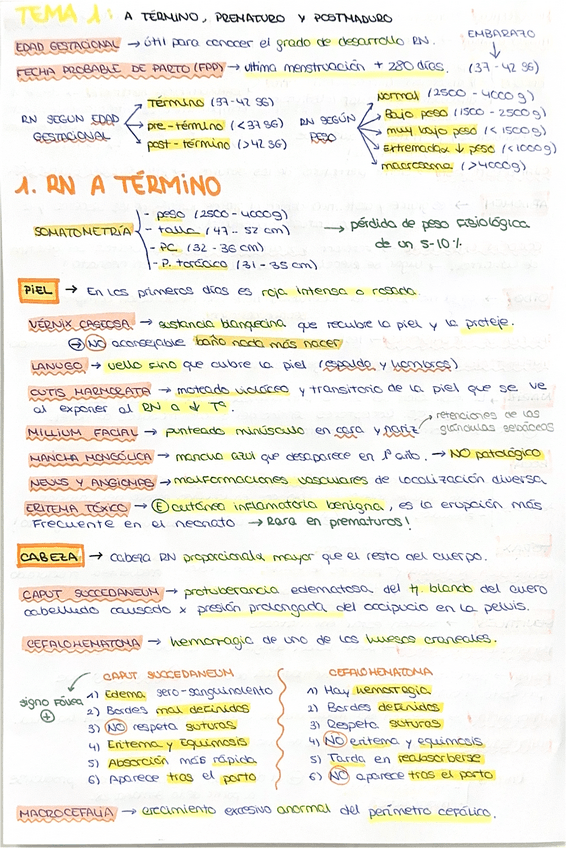 TEMA 1: A TÉRMINO, PREMATURO Y POSTMADURO
EDAD GESTACIONAL → útil para conocer el grado de desarrollo RN.
EMBARAZO
FECHA PROBABLE DE PARTO (FPP) → ultima menstruación + 280 días. (37-42 SG)
RN SEGÚN EDAD GESTACIONAL
Término (37-42 SG)
pre-término (<37 SG)
post-término (>42 SG)
RN SEGÚN PESO
Normal (2500-4000g)
Bajo peso (1500-2500g)
muy bajo peso (<1500g)
Extremadax ↓ peso (<1000g)
macrosoma (>4000g)
1. RN A TÉRMINO
SOMATOMETRÍA
- peso (2500-4000g)
- talla (47-52 cm)
- PC (32-36 cm)
- P. torácico (31-35 cm)
→ pérdida de peso FISIOLÓGICA
de un 5-10%
PIEL → En los primeros días es roja intensa o rosada.
VÉRNIX CASEOSA → sustancia blanquecina que recubre la piel y la proteje.
→ NO aconsejable baño nada más nacer
LANUGO → vello fino que cubre la piel (espalda y hombros)
CUTIS MARMORATA → moteado violáceo y transitorio de la piel que se ve
al exponer al RN a ↓ Tº.
MILLIUM FACIAL → punteado minúsculo en cara y nariz
retenciones de las
glándulas sebáceas
MANCHA MONGÓLICA → mancha azul que desaparece en 1º año. → NO patológico
NEVUS Y ANGIOMAS → malformaciones vasculares de localización diversa
ERITEMA TÓXICO → E cutánea inflamatoria benigna, es la erupción más
frecuente en el neonato → Rara en prematuros!
CABEZA → cabeza RN proporcionalx mayor que el resto del cuerpo.
CAPUT SUCCEDANEUM → protuberancia edematosa del tj. blando del cuero
cabelludo causado x presión prolongada del occipucio en la pelvis.
CEFALOHEMATOMA → hemorragia de uno de los huesos craneales.
CAPUT SUCCEDANEUM
signo fóvea +
1) Edema sero-sanguinolento
2) Bordes mal definidos
3) NO respeta suturas
4) Eritema y Equimosis
5) Absorción más rápida
6) Aparece tras el parto
CEFALOHEMATOMA
1) Hay hemorragia
2) Bordes definidos
3) Respeta suturas
4) NO eritema y equimosis
5) Tarda en reabsorberse
6) NO aparece tras el parto
MACROCEFALIA → crecimiento excesivo anormal del perímetro cefálico.